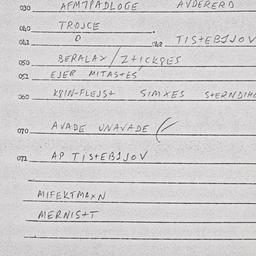 030 AFM7PADLOGE AVDERERD
040 TROJCE
041 D 042 TIStEBJJOV
050 BERALAX/ZtICKPES
051 EJER MITAStES
060 KPIN-FLEJSt SIMXES StERNDIH
070 AVADE UNAVADE
072 AP TIStEBJJOV
MIFEKTMAXN
MERNIStT